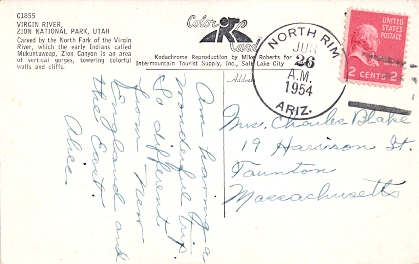 C1855
VIRGIN RIVER,
ZION NATIONAL PARK, UTAH
Carved by the North Fork of the Virgin
River, which the early Indians called
Mukuntuweap, Zion Canyon is an area
of vertical gorges, towering colorful
walls and cliffs.
Color
Card
Kodachrome Reproduction by Mike Roberts for
Intermountain Tourist Supply, Inc., Salt Lake City
Address
NORTH RIM
JUN
26
A.M.
1954
ARIZ.
UNITED STATES
POSTAGE
2 CENTS 2
Am having a
wonderful trip.
So different
from New
England and
the East.
Alice.
Mrs. Charles Blake
19 Harrison St.
Taunton
Massachusetts